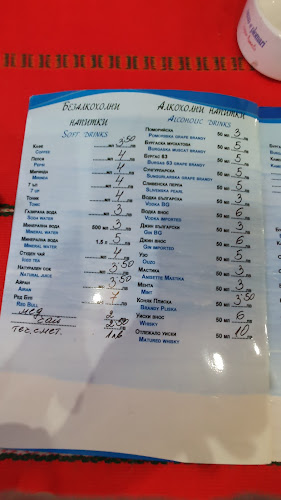 Безалкохолни
напитки
Soft drinks
Кафе мл 3 50 лв
Coffee
Пепси мл 4 лв
Pepsi
Миринда мл 4 лв
Mirinda
7 ъп мл 4 лв
7 up
Тоник мл 4 лв
Tonic
Газирана вода мл 3 лв
Soda water
Минерална вода 500 мл 3 лв
Mineral water
Минерална вода 1.5 л 5 лв
Mineral water
Студен чай мл 4 лв
Iced tea
Натурален сок мл 3 50 лв
Natural juice
Айран мл 3 лв
Airan
Ред Бул мл 7 лв
Red Bull
мед 2 лв
чай 2 50 лв
тес. смет. 1 лв
Алкохолни напитки
Alcoholic drinks
Поморийска 50 мл 3 лв
Pomoriiska grape brandy
Бургаска мускатова 50 мл 5 лв
Burgaska muscat brandy
Бургас 63 50 мл 5 лв
Burgas 63 grape brandy
Сунгурларска 50 мл 5 лв
Sungurlarska grape brandy
Сливенска перла 50 мл 5 лв
Slivenska pearl
Водка български 50 мл 3 лв
Vodka BG
Водка внос 50 мл 6 лв
Vodka imported
Джин български 50 мл 3 лв
Gin BG
Джин внос 50 мл 6 лв
Gin imported
Узо 50 мл 5 лв
Ouzo
Мастика 50 мл 3 лв
Anisette Mastika
Мента 50 мл 3 лв
Mint
Коняк Плиска 50 мл 3 50 лв
Brandy Pliska
Уиски внос 50 мл 6 лв
Whisky
Отлежало уиски 50 мл 10 лв
Matured whisky